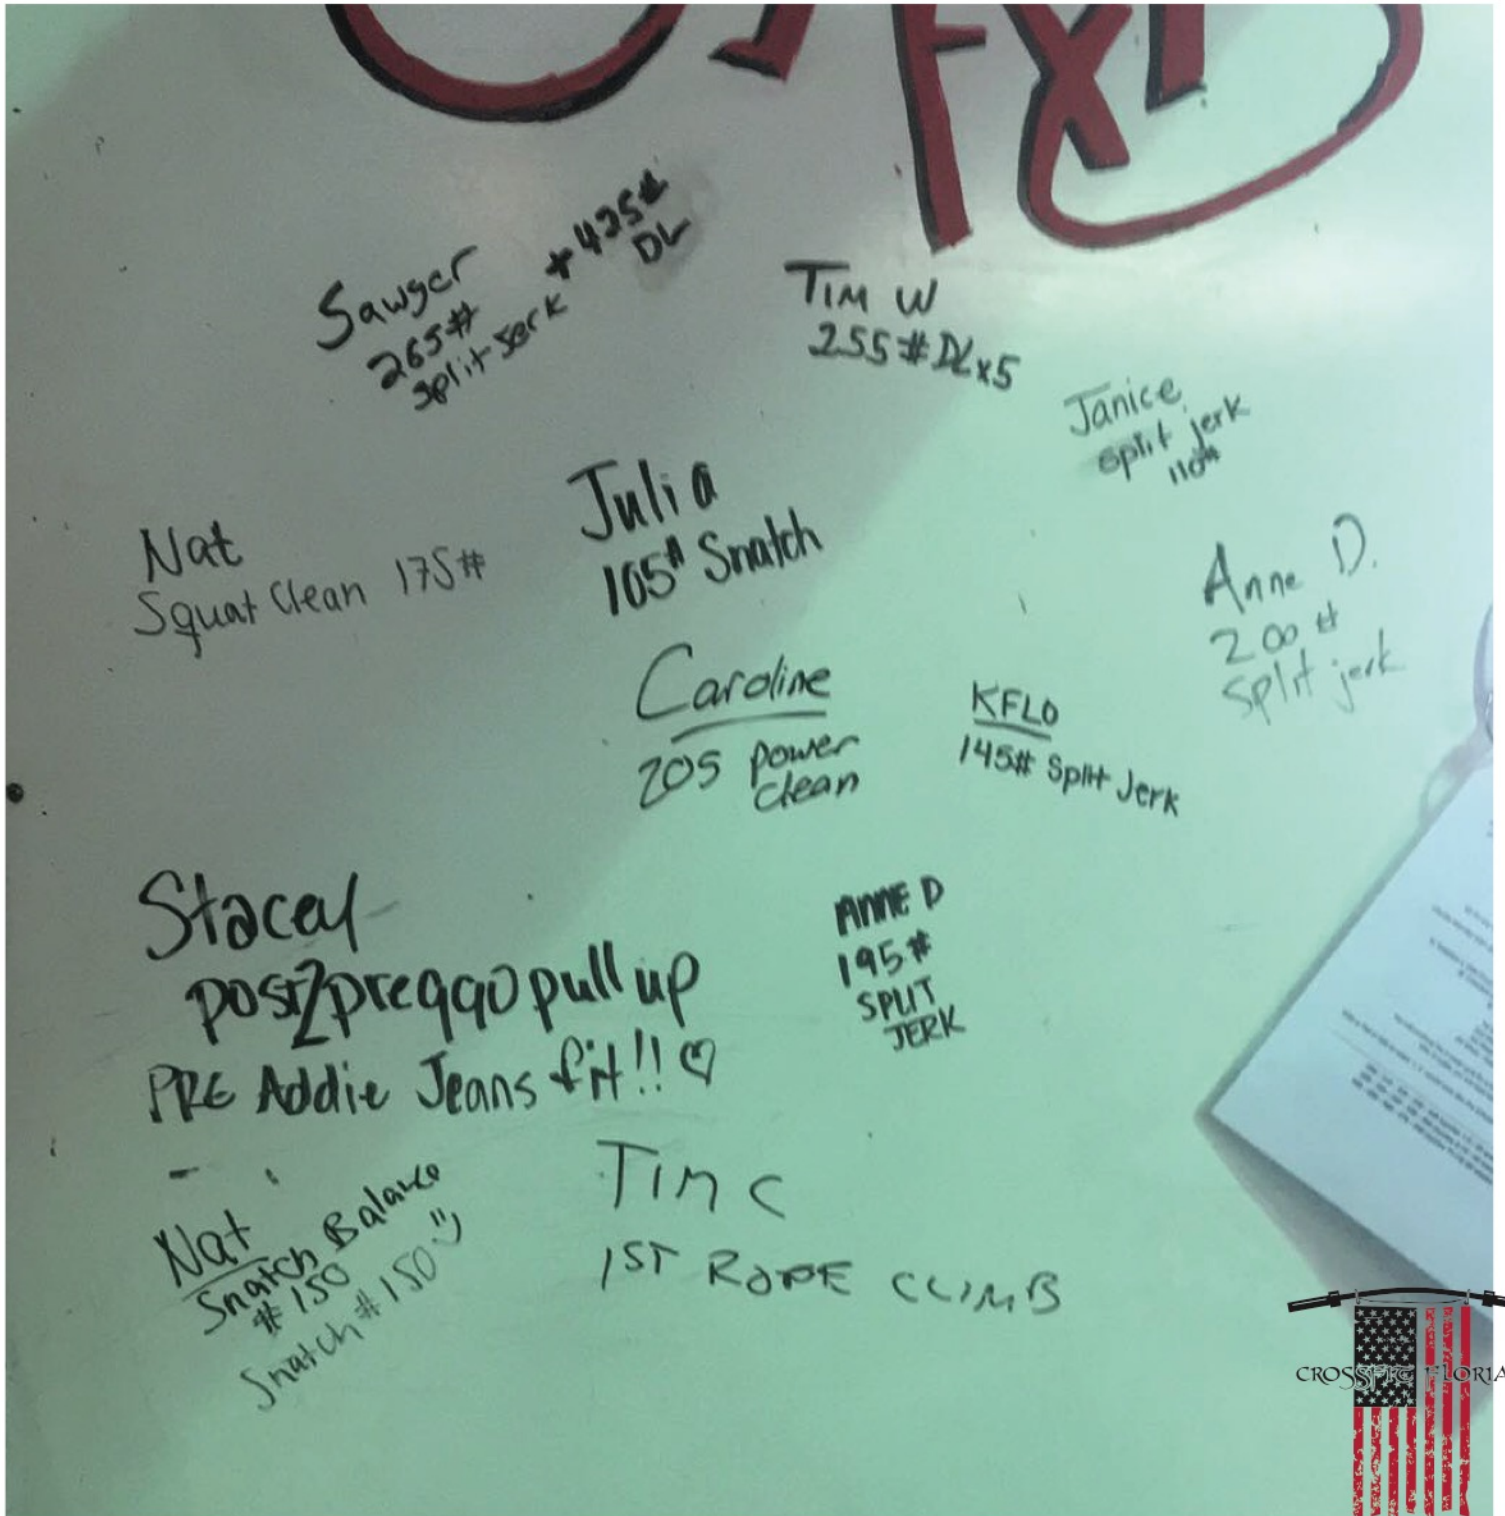 Sawyer
265#
Split Jerk
+ 425#
DL
TIM W
255# DL x5
Janice
split jerk
110#
Nat
Squat Clean 175#
Julia
105# Snatch
Anne D.
200#
split jerk
Caroline
205 power
clean
KFLO
145# Split Jerk
Stacey
post 2 preggo pull up
PRE Addie Jeans fit!! ♡
ANNE D
195#
SPLIT
JERK
Nat
Snatch Balance
#150
Snatch #150 :)
TIM C
1ST ROPE CLIMB
CROSSFIT FLORIA